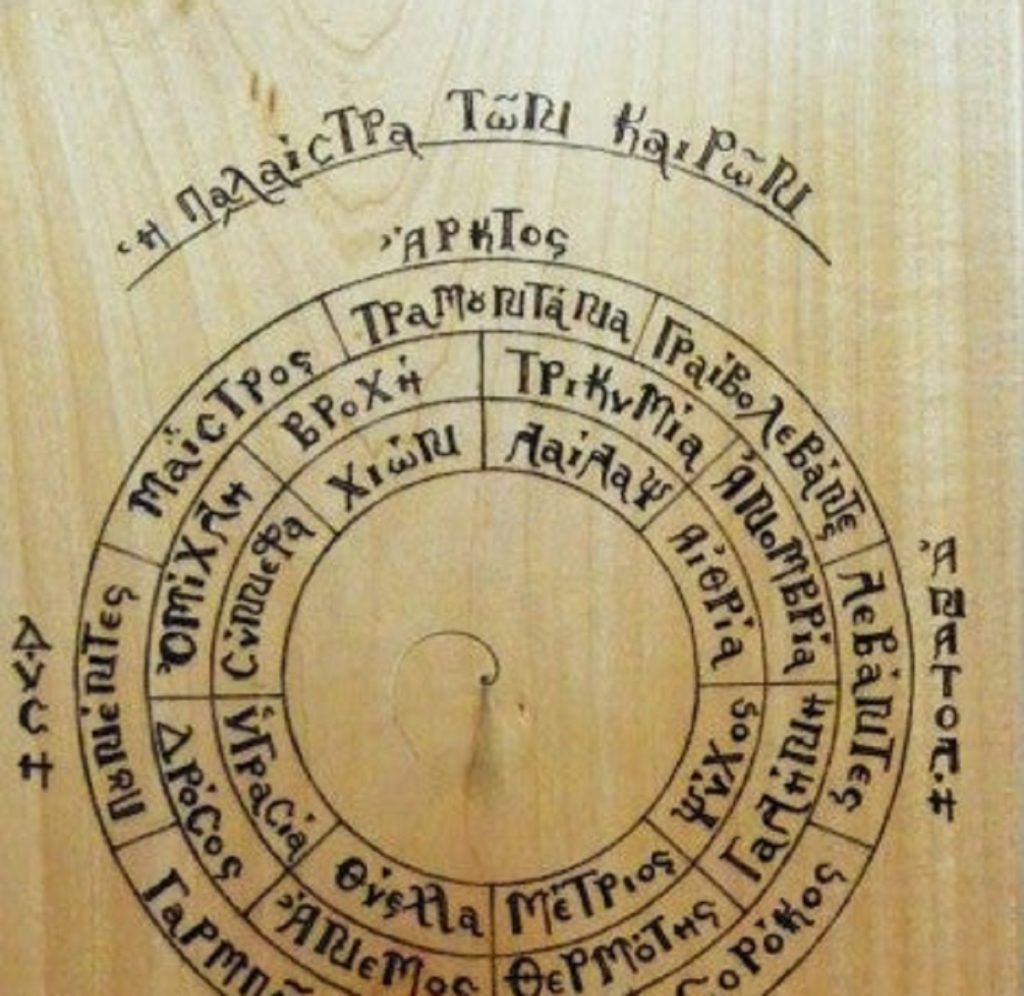 Ἡ ΠαλαίσΤΡα Τῶν ΚαιΡῶν
ἌΡΚΤος
ΤΡαΜȣνΤάνα
ΓΡαίΒολεΒάνΤες
λεΒάνΤες
ΣοΡόΚος
ΠȣνέντΤες
ΜαΐσΤΡος
ΒΡοΧή
ΤΡιΚνΜία
ἈνοΜΒΡία
Γαλήνη
ΘεΡΜόΤης
Ἄνεμος
ΔΡόσος
ὈΜίΧλη
Χιών
λαίλαψ
αἰθΡία
ψύΧος
ΜέΤΡιος
Θύελλα
ὑγΡασία
Σύννεφα
ἈΝΑΤΟΛΗ
ΔΥΣΗ